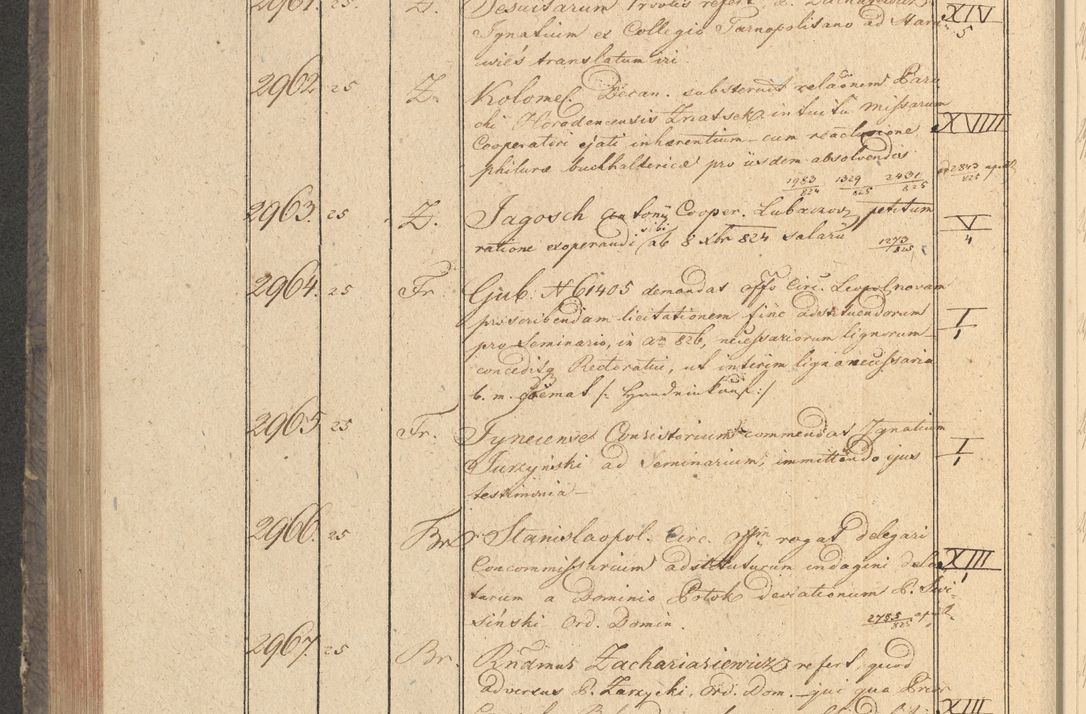 2961. 25 Z. Jesuitarum refert, XIV
Ignatium ex Collegio Tarnopolitano ad Staro 5
wieś translatum iri.
2962 25 Z. Kolomej. Decan. substernit relãonem Paro
chi Horodencensis intuitu missarum XVIII
Cooperatori ejati inhærentium cum reaclusione
philuræ buchhaltericæ pro iisdem absolvendis 2843 825
1983 824 1329 825 2431 825
2963. 25 Z. Jagosch Antony Cooper. Lubaczov petitum V
ratione exoperandi sibi ab 8 Xbr 824 salarii 1273 825 4
2964. 25 Fr. Gub. N 61405 demandat offo Circ. Leopol novam
proscribendam licitationem finc adstituendorum I
pro Seminario, in an 826, necessariorum lignorum 1
conceditq Rectoratui, ut interim ligna necessaria
b. m. cõemat /: Handeinkauf :/
2965 25 Fr. Tyneciense Consistorium commendat Ignatium
Jurzyński ad Seminarium, immittendo ejus I
testimonia 1
2966. 25 Br. Stanislaopol. Circ. offm rogat delegari
Concommissarium adstituturum indagini dela XIII
tarum a Dominio Potok deviationum P. Swi- 1
siński Ord. Domin. 2785 825
2967. 25 Br. Rñdmus Zachariasiewicz refert, quod
adversus P. Zarzycki, Ord. Dom. qui qua Prior
XIII